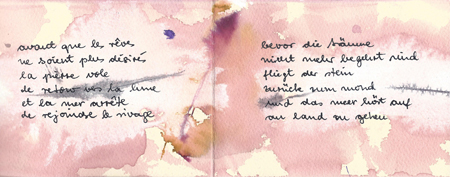 avant que les rêves
ne soient plus désirés
la pierre vole
de retour vers la lune
et la mer arrête
de rejoindre le rivage
bevor die träume
nicht mehr begehrt sind
fliegt der stein
zurück zum mond
und das meer hört auf
an land zu gehen